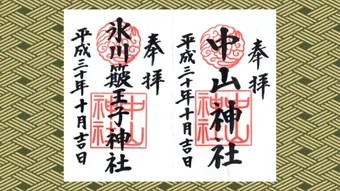 奉拝
中山神社
平成三十年十月吉日
中山神社
奉拝
氷川簸王子神社
平成三十年十月吉日
中山神社